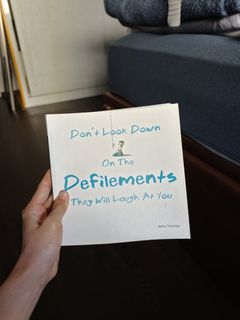 Don't Look Down
On The
Defilements
They Will Laugh At You